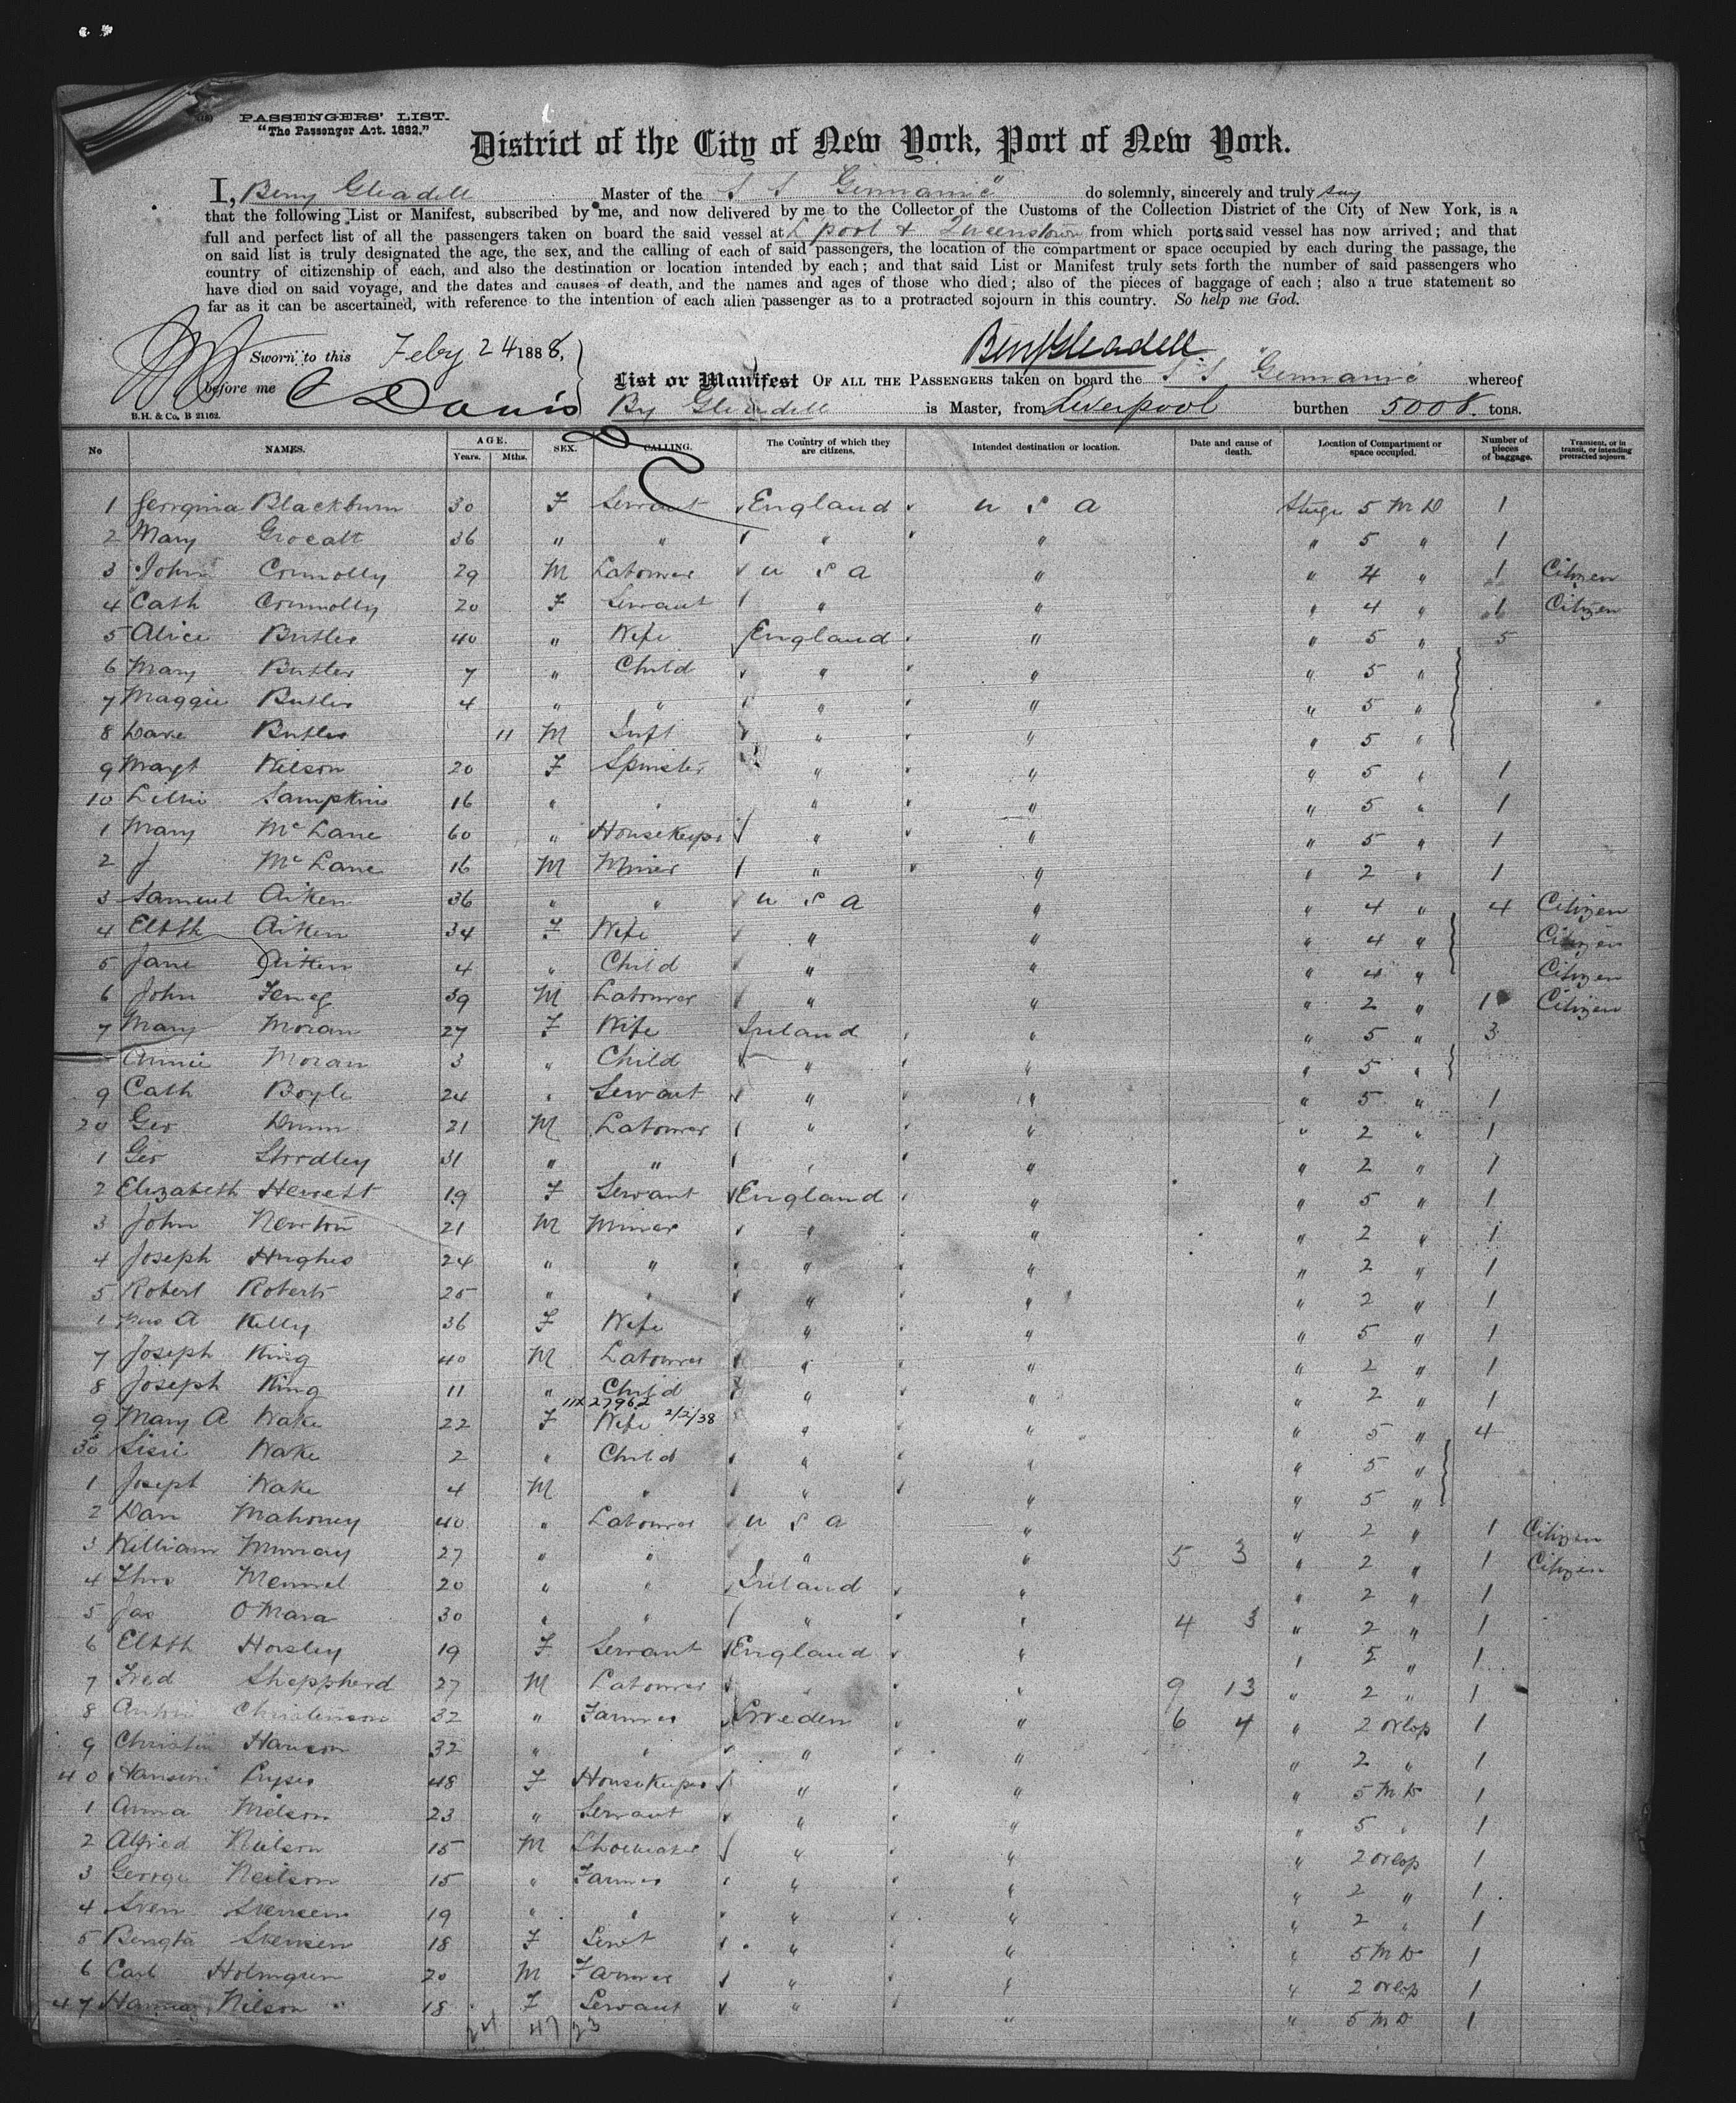 PASSENGERS' LIST.
"The Passenger Act. 1882."
District of the City of New York, Port of New York.
I, Benj Gleadell Master of the S S "Germanic" do solemnly, sincerely and truly say
that the following List or Manifest, subscribed by me, and now delivered by me to the Collector of the Customs of the Collection District of the City of New York, is a
full and perfect list of all the passengers taken on board the said vessel at L'pool & Queenstown from which ports said vessel has now arrived; and that
on said list is truly designated the age, the sex, and the calling of each of said passengers, the location of the compartment or space occupied by each during the passage, the
country of citizenship of each, and also the destination or location intended by each; and that said List or Manifest truly sets forth the number of said passengers who
have died on said voyage, and the dates and causes of death, and the names and ages of those who died; also of the pieces of baggage of each; also a true statement so
far as it can be ascertained, with reference to the intention of each alien passenger as to a protracted sojourn in this country. So help me God.
Sworn to this Feby 24 1888,
Benj Gleadell
before me C Davis
List or Manifest OF ALL THE PASSENGERS taken on board the S.S. "Germanic" whereof
B.H. & Co. B 21162.
By Gleadell is Master, from Liverpool burthen 5008. tons.
No NAMES. AGE. Years. Mths. SEX. CALLING. The Country of which they are citizens. Intended destination or location. Date and cause of death. Location of Compartment or space occupied. Number of pieces of baggage. Transient, or in transit, or intending protracted sojourn.
1 Georgina Blackburn 30 F Servant England U S A Stge 5 M D 1
2 Mary Grocatt 36 " " " " " 5 " 1
3 John Connolly 29 M Labourer U S A " " 4 " 1 Citizen
4 Cath Connolly 20 F Servant " " " 4 " 1 Citizen
5 Alice Butler 40 " Wife England " " 5 " 5
6 Mary Butler 7 " Child " " " 5 "
7 Maggie Butler 4 " " " " " 5 "
8 Dave Butler 11 M Inft " " " 5 "
9 Margt Wilson 20 F Spinster " " " 5 " 1
10 Lillie Sampkins 16 " " " " " 5 " 1
1 Mary McLane 60 " Housekeepr " " " 5 " 1
2 J McLane 16 M Miner " " " 2 " 1
3 Samuel Aitken 36 " " U S A " " 4 " 4 Citizen
4 Elbth Aitken 34 F Wife " " " 4 " Citizen
5 Jane Aitken 4 " Child " " " 4 " Citizen
6 John 39 M Labourer " " " 2 " 1 Citizen
7 Mary Moran 27 F Wife Ireland " " 5 " 3
Annie Moran 3 " Child " " " 5 "
9 Cath Boyle 24 " Servant " " " 5 " 1
20 Geo Dunn 21 M Labourer " " " 2 " 1
1 Geo Stoodley 31 " " " " " 2 " 1
2 Elizabeth Hewett 19 F Servant England " " 5 " 1
3 John Newton 21 M Miner " " " 2 " 1
4 Joseph Hughes 24 " " " " " 2 " 1
5 Robert Roberts 25 " " " " " 2 " 1
Mrs A Kelly 36 F Wife " " " 5 " 1
7 Joseph King 40 M Labourer " " " 2 " 1
8 Joseph King 11 " Child " " " 2 " 1
11X27962 2/2/38
9 Mary A Wake 22 F Wife " " " 5 " 4
30 Wake 2 " Child " " " 5 "
1 Joseph Wake 4 M " " " " 5 "
2 Dan Mahoney 40 " Labourer U S A " " 2 " 1 Citizen
3 William Murray 27 " " " " 5 3 " 2 " 1 Citizen
4 Thos 20 " " Ireland " " 2 " 1
5 Jas O'Mara 30 " " " " 4 3 " 2 " 1
6 Elbth Horsley 19 F Servant England " " 5 " 1
7 Fred Sheppherd 27 M Labourer " " 9 13 " 2 " 1
8 Christenson 32 " Farmer Sweden " 6 4 " 2 orlop 1
9 Hanson 32 " " " " " 2 " 1
40 48 F Housekeeper " " " 5 M D 1
1 Anna Nielson 23 " Servant " " " 5 " 1
2 Alfred Neilson 15 M Shoemaker " " " 2 orlop 1
3 George Neilson 15 " Farmer " " " 2 " 1
4 Sven Svensen 19 " " " " " 2 " 1
5 Bengta Svensen 18 F Servt " " " 5 M D 1
6 Carl Holmgren 20 M Farmer " " " 2 orlop 1
47 Hanna Nilson 18 F Servant " " " 5 M D 1
24 47 23